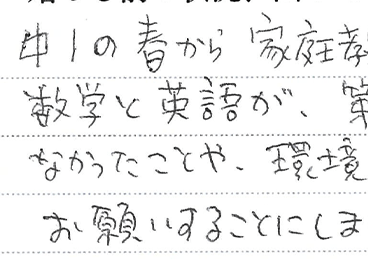 中1の春から家庭教
数学と英語が、第
なかったことや、環境
お願いすることにしま